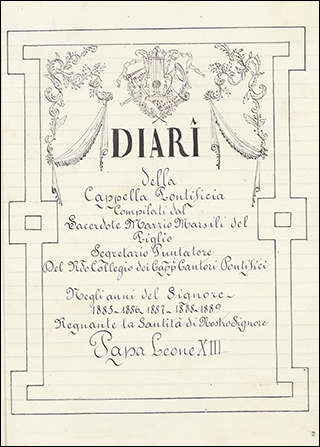 DIARÎ
della
Cappella Pontificia
Compilati dal
Sacerdote Marzio Marsili del
Piglio
Segretario Puntatore
Del Rdo Collegio dei Capp Cantori Pontifici
Negli anni del Signore
1885-1886-1887-1888-1889
Regnante la Santità di Nostro Signore
Papa Leone XIII
2